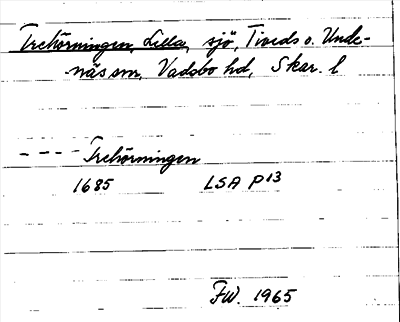 Trehörningen, Lilla, sjö, Tiveds o. Unde-
näs snr, Vadsbo hd, Skar. l
- - - - Trehörningen
1685 LSA P13
FW. 1965